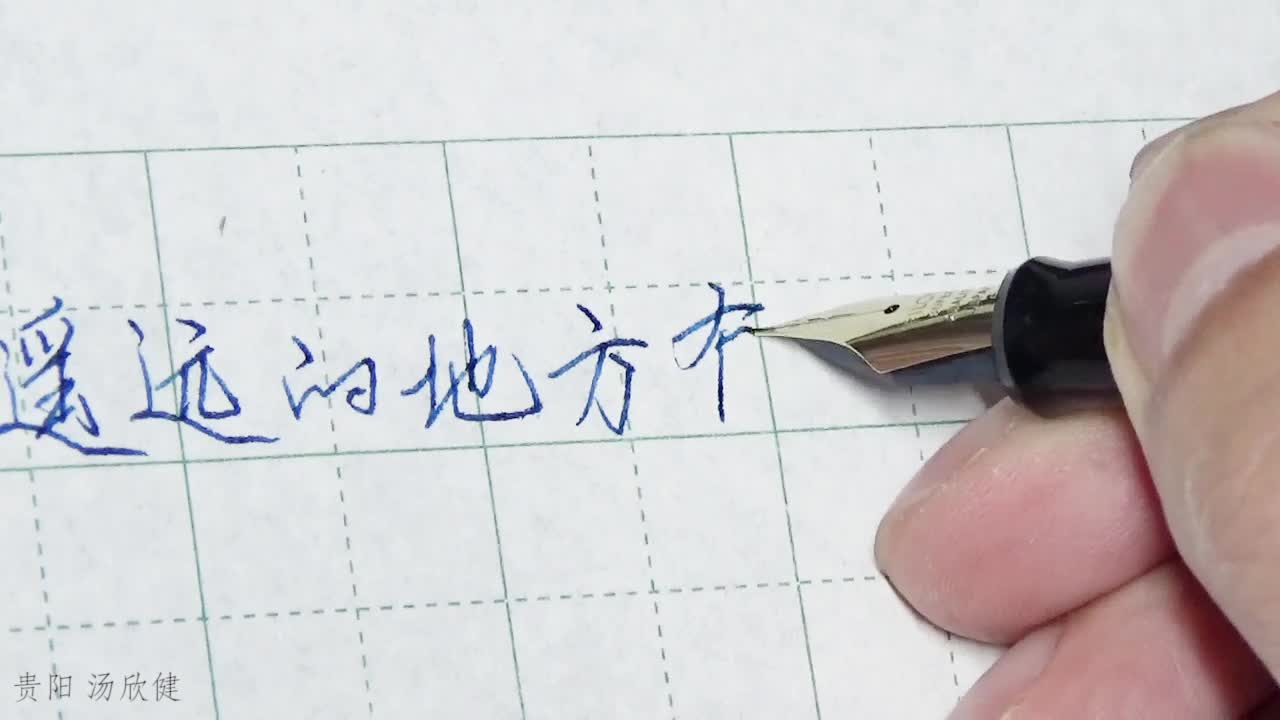 遥远的地方
贵阳 汤欣健